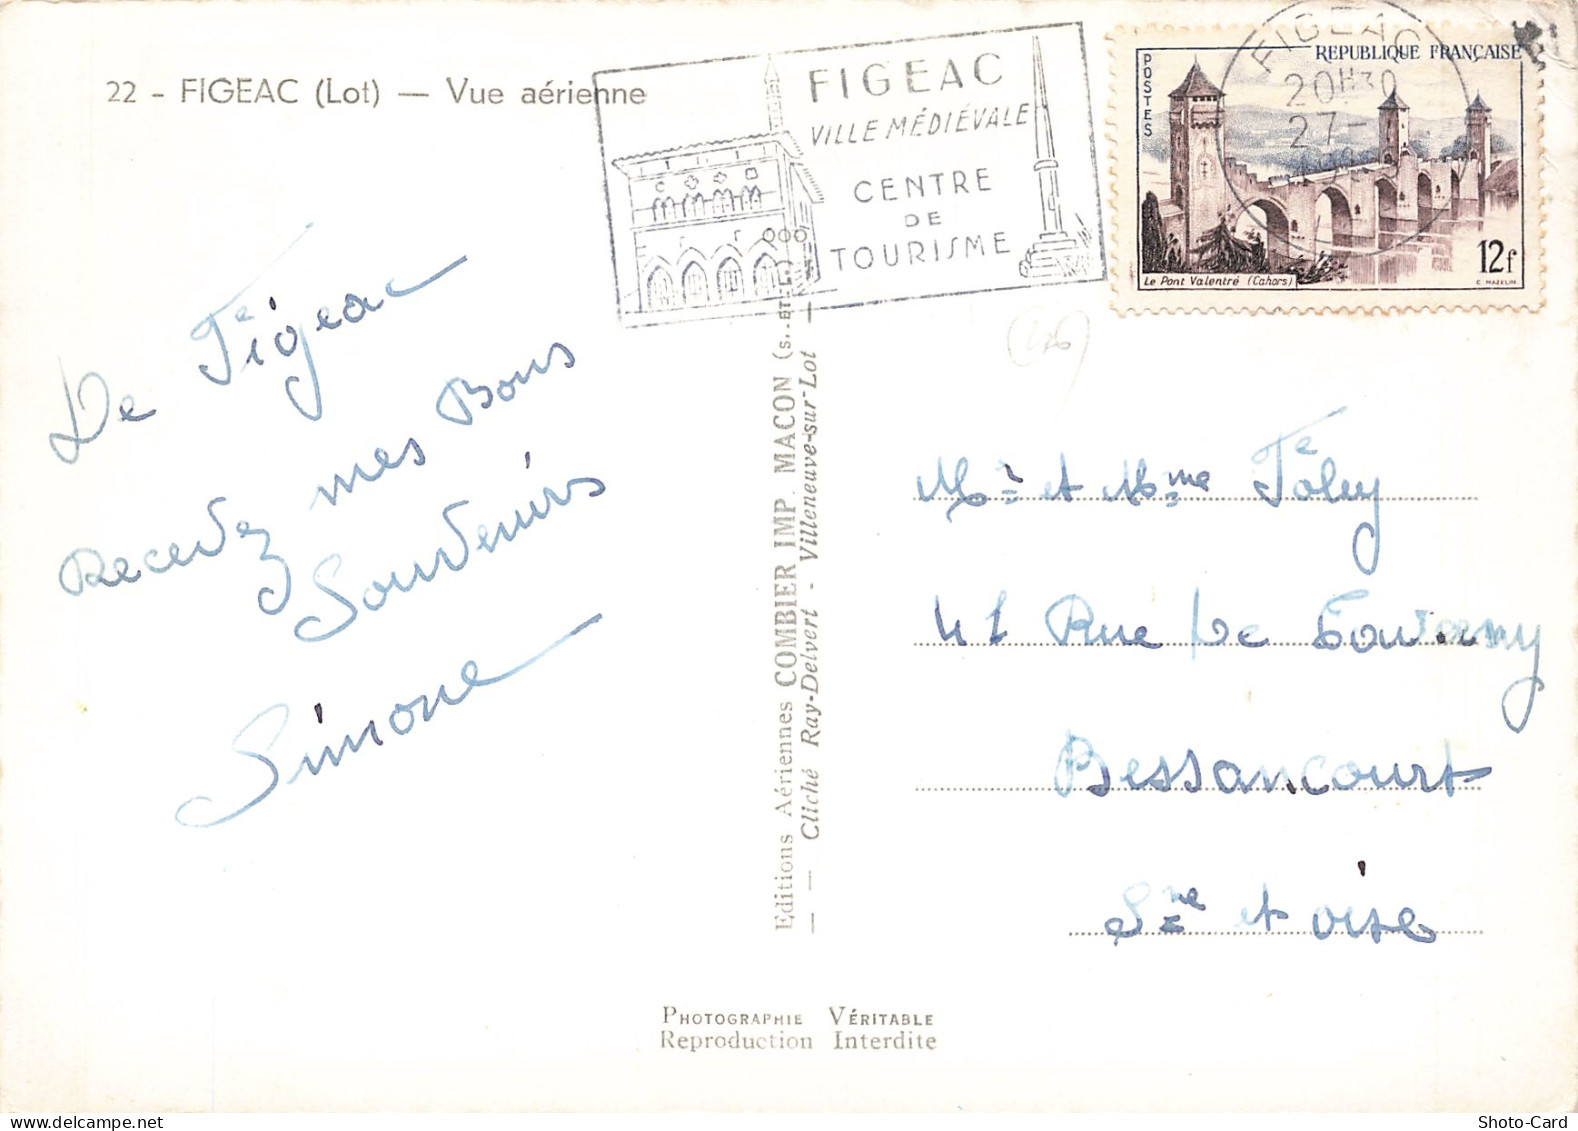 22 - FIGEAC (Lot) — Vue aérienne
FIGEAC
VILLE MÉDIÉVALE
CENTRE
DE
TOURISME
FIGEAC
20H30
27-
POSTES
REPUBLIQUE FRANÇAISE
Le Pont Valentré (Cahors)
12f
C. MAZELIN
De Figeac
Recevez mes Bons
Souvenirs
Simone
Editions Aériennes COMBIER IMP. MACON (S.-ET-L.)
— Cliché Ray-Delvert - Villeneuve-sur-Lot —
(46)
Mr et Mme Foley
41 Rue De
Bessancourt
Sne et oise
PHOTOGRAPHIE VÉRITABLE
Reproduction Interdite
Shoto-Card